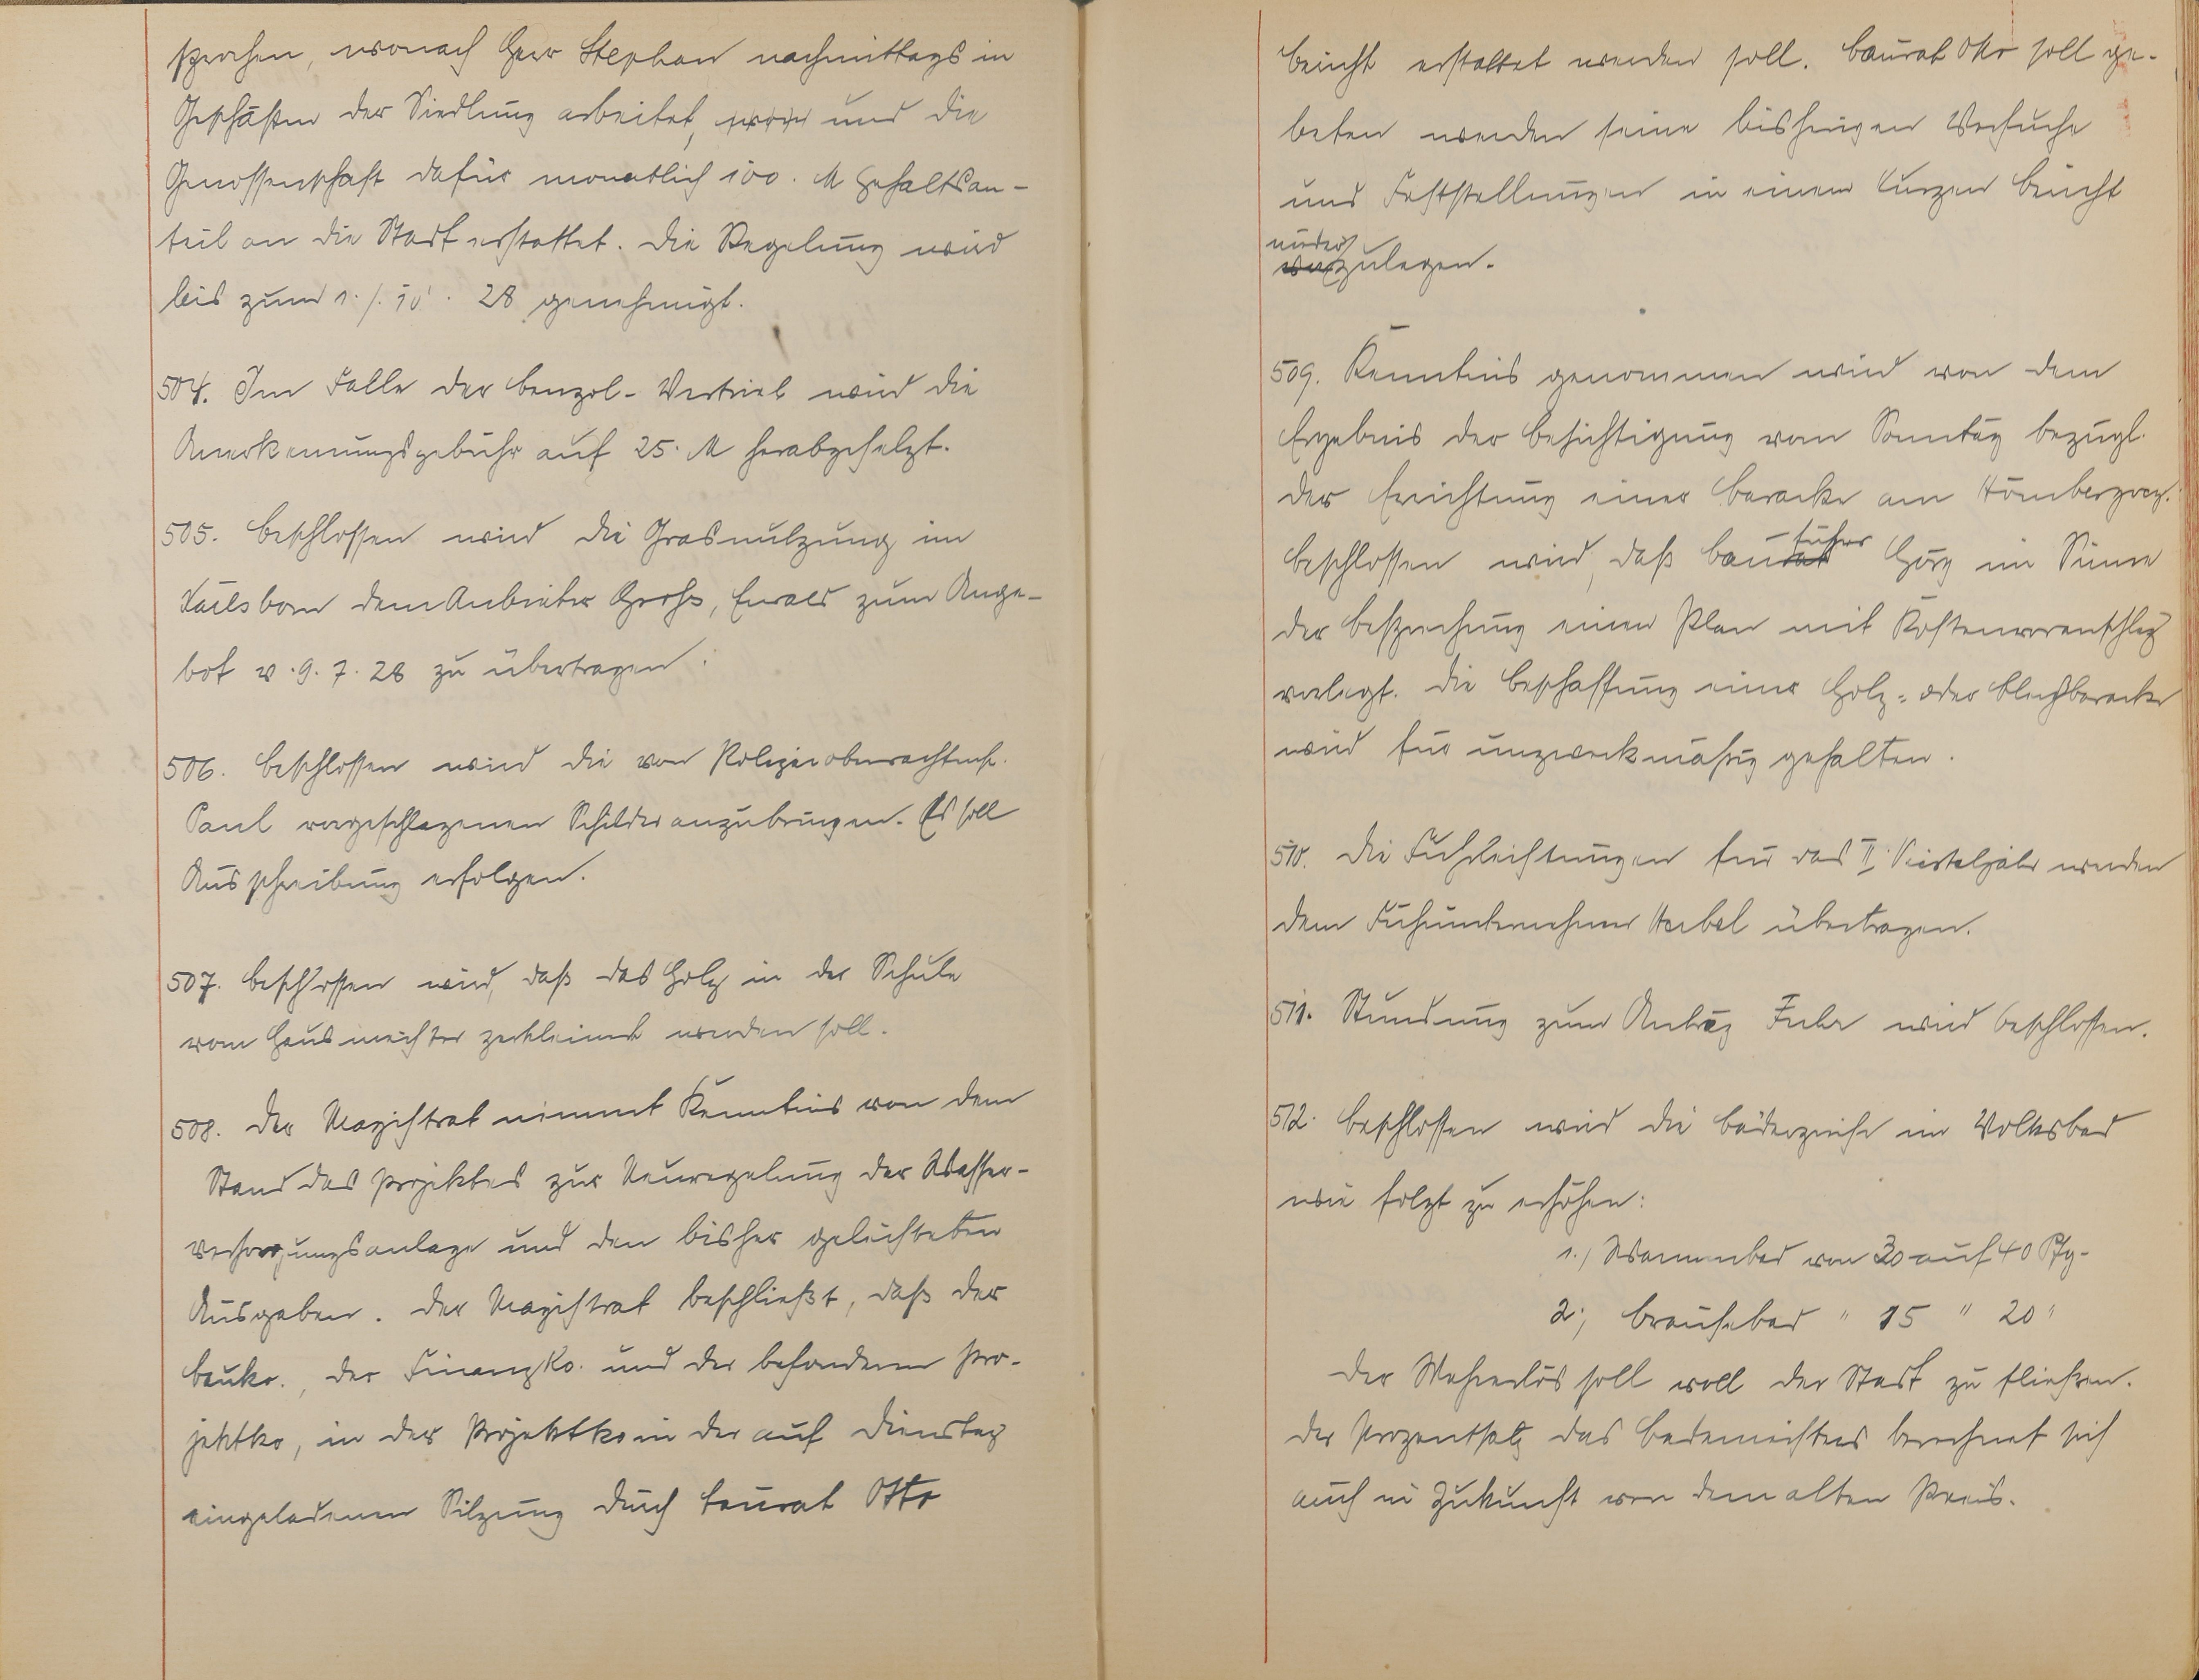 sprochen, wonach Herr Stephan nachmittags in
Geschäften der Siedlung arbeitet, und die
Genossenschaft dafür monatlich 100. M Gehaltsan-
teil an die Stadt erstattet. Die Regelung wird
bis zum 1./.10. 28 genehmigt.
504. Im Falle der Benzol-Vertrieb wird die
Anerkennungsgebühr auf 25. M herabgesetzt.
505. Beschlossen wird die Grasnutzung im
dem Anbieter Groß, Ewald zum Ange-
bot v. 9. 7. 28 zu übertragen.
506. Beschlossen wird die von Polizeioberwachtm.
Paul vorgeschlagenen Schilder anzubringen. Es soll
Ausschreibung erfolgen.
507. Beschlossen wird, daß das Holz in der Schule
vom Hausmeister zerkleinert werden soll.
508. Der Magistrat nimmt Kenntnis von dem
Stand des Projektes zur Neuregelung der Wasser-
versorgungsanlage und den bisher geleisteten
Ausgaben. Der Magistrat beschließt, daß der
Bauko., der Finanzko. und der besonderen Pro-
jektko, in der Projektko in der auf Dienstag
eingeladenen Sitzung durch Baurat Otto
bericht erstattet werden soll. Baurat Otto soll ge-
beten werden seine bisherigen Versuche
und Feststellungen in einem kurzen Bericht
nieder
vorzulegen.
509. Kenntnis genommen wird von dem
Ergebnis der Besichtigung vom Sonntag bezügl.
der Errichtung einer Baracke am
führer
Beschlossen wird, daß Baurat Görg im Sinne
der Besprechung einen Plan mit Kostenvoranschlag
vorlegt. Die Beschaffung einer Holz- oder Blechbaracke
wird für unzweckmäßig gehalten.
510. Die Fuhrleistungen für das II. Vierteljahr werden
dem Fuhrunternehmer übertragen.
511. Stundung zum Antrag wird beschlossen.
512. Beschlossen wird die Bäderpreise im Volksbad
wie folgt zu erhöhen:
1./ Wannenbad von 30 auf 40 Pfg.
2./ Brausebad " 15 " 20 "
Der Mehrerlös soll voll der Stadt zu fließen.
Der Prozentsatz des Bademeisters berechnet sich
auch in Zukunft von dem alten Preis.